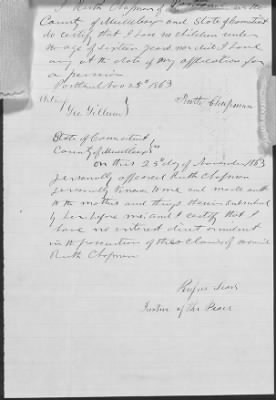 I Ruth Chapman of Portland in the
County of Middlesex and State of Connecticut
do certify that I have no children under
the age of sixteen years nor did I have
any at the date of my application for
a pension
Portland Nov 23d 1863
Ruth Chapman
Geo Gillum
State of Connecticut
County of Middlesex ss
on this 23d day of November 1863
personally appeared Ruth Chapman
personally known to me and made oath
to the matters and things therein subscribed
by her before me, and I certify that I
have no interest direct or indirect
in the prosecution of this claim of
Ruth Chapman
Rufus Sears
Justice of the Peace